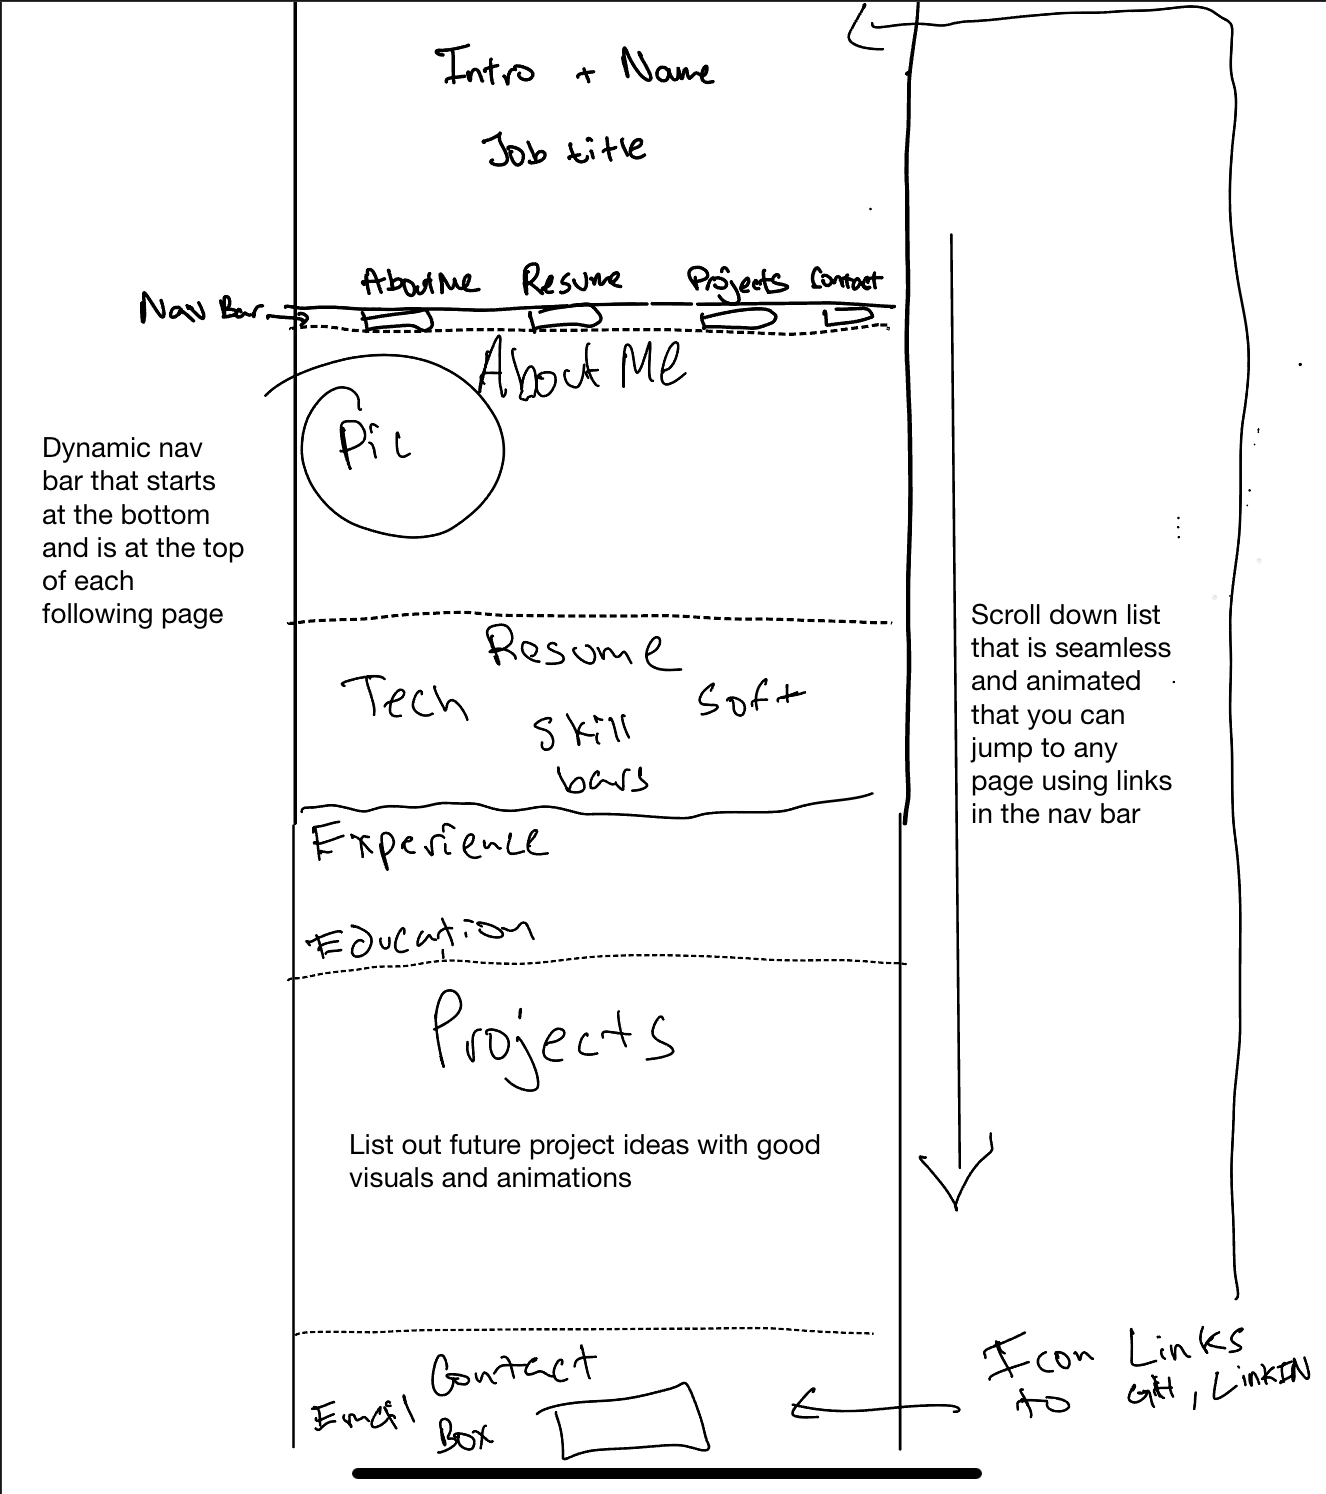 Intro + Name
Job title
About Me Resume Projects Contact
Nav Bar
About Me
Pic
Dynamic nav
bar that starts
at the bottom
and is at the top
of each
following page
Resume
Tech Soft
Skill
bars
Scroll down list
that is seamless
and animated
that you can
jump to any
page using links
in the nav bar
Experience
Education
Projects
List out future project ideas with good
visuals and animations
Contact
Email
Box
Icon Links
to GH, LinkIN